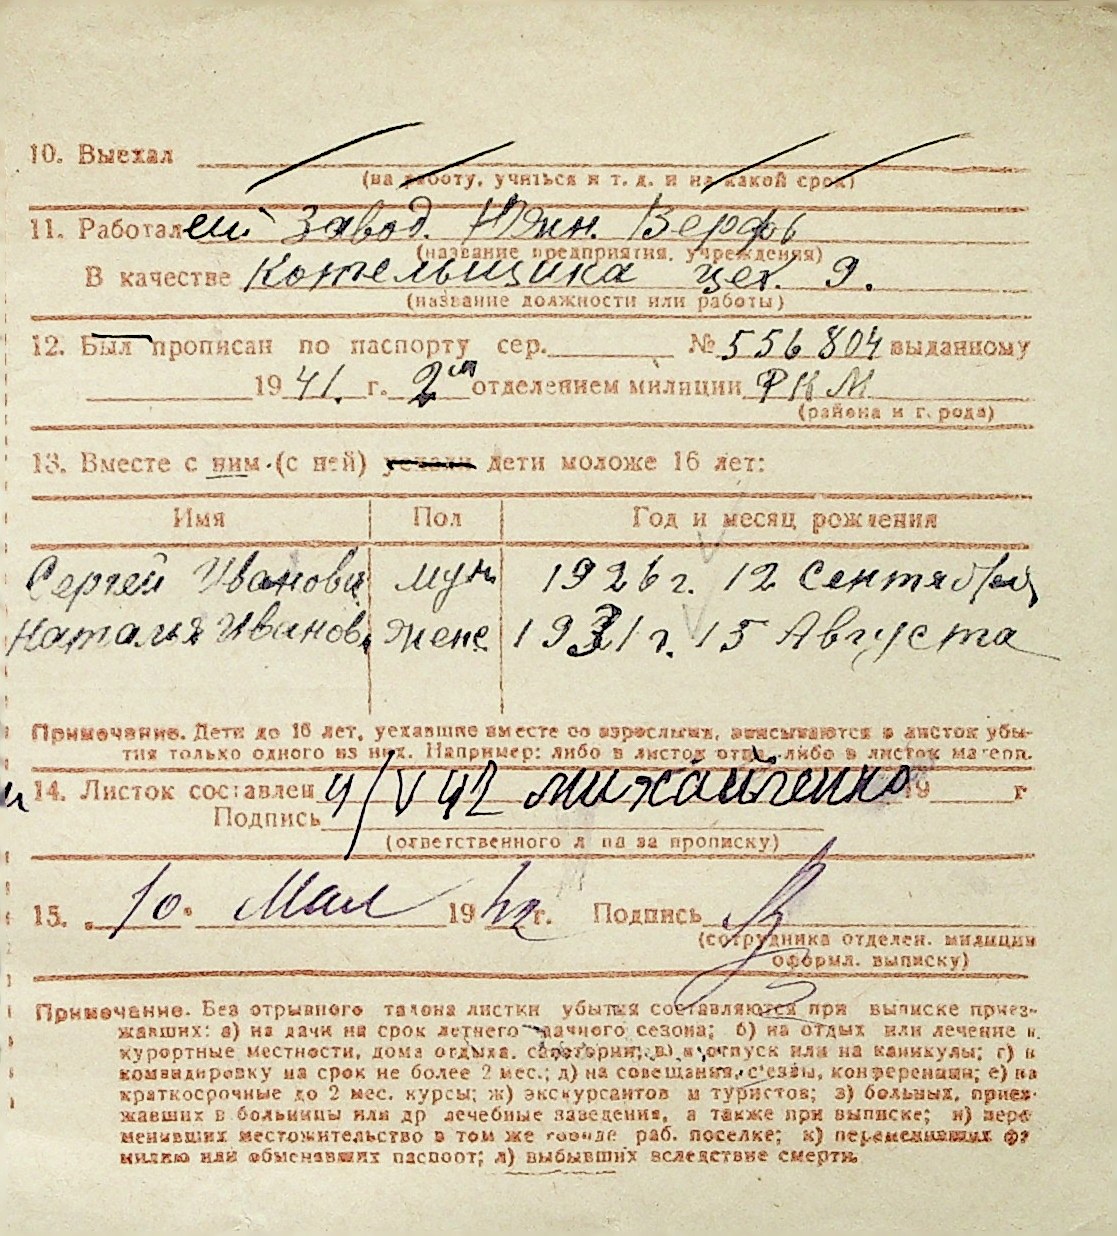 10. Выехал
(на работу, учиться и т. д. и на какой срок)
11. Работал ещ завод. Южн. Верфь
(название предприятия, учреждения)
В качестве Котельщика цех. 9.
(название должности или работы)
12. Был прописан по паспорту сер. № 556804 выданному
19 41. г. 2ым отделением милиции РКМ
(района и города)
13. Вместе с ним (с ней) уехали дети моложе 16 лет:
Имя Пол Год и месяц рождения
Сергей Иванови муж 1926 г. 12 Сентября
Наталья Иванов. жене 1931 г. 15 Августа
Примечание. Дети до 16 лет, уехавшие вместе со взрослыми, вписываются в листок убы-
тия только одного из них. Например: либо в листок отца, либо в листок матери.
14. Листок составлен 4/V 42 Михайченко 19 г
Подпись
(ответственного лица за прописку)
15. 10. Мая 19 42 г. Подпись
(сотрудника отделен. милиции
оформл. выписку)
Примечание. Без отрывного талона листки убытия составляются при выписке приез-
жавших: а) на дачи на срок летнего дачного сезона; б) на отдых или лечение в
курортные местности, дома отдыха, санатории; в) в отпуск или на каникулы; г) в
командировку на срок не более 2 мес.; д) на совещания, с'езды, конференции; е) на
краткосрочные до 2 мес. курсы; ж) экскурсантов и туристов; з) больных, приез-
жавших в больницы или др лечебные заведения, а также при выписке; и) пере
менивших местожительство в том же городе, раб. поселке; к) переменивших фа
милию или обменявших паспорт; л) выбывших вследствие смерти.